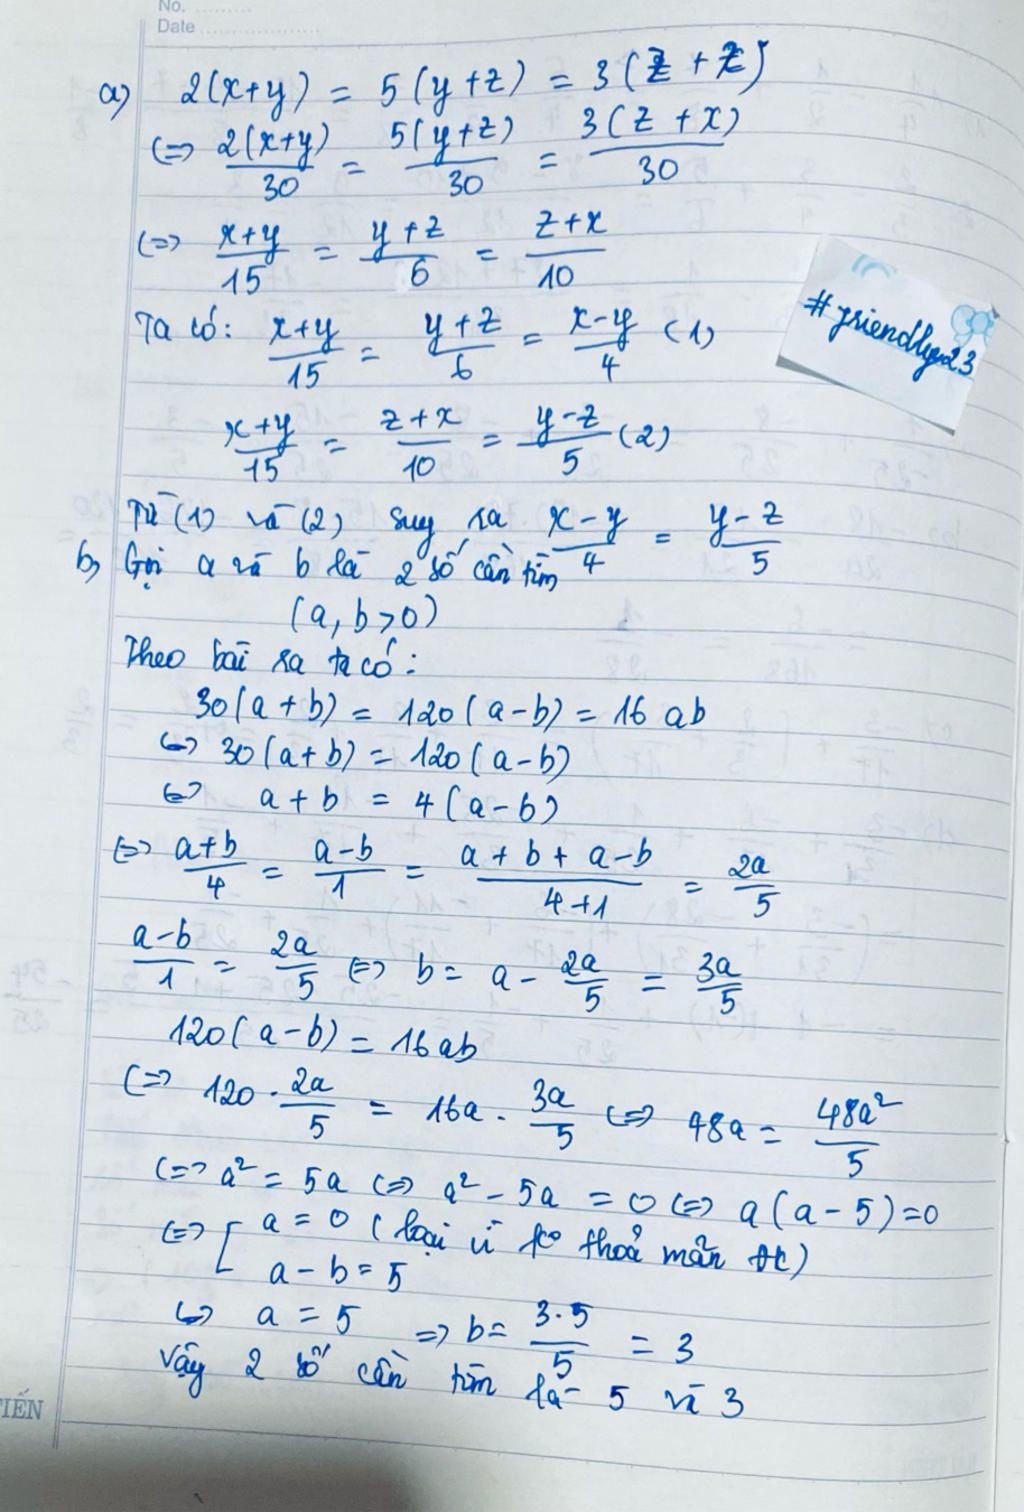 No.
Date
a) 2(x+y) = 5(y+z) = 3(z+x)
(=) 2(x+y)/30 = 5(y+z)/30 = 3(z+x)/30
(=) x+y/15 = y+z/6 = z+x/10
Ta có: x+y/15 = y+z/6 = x-y/4 (1)
#friendly23
x+y/15 = z+x/10 = y-z/5 (2)
Từ (1) và (2) suy ra x-y/4 = y-z/5
b, Gọi a và b là 2 số cần tìm
(a, b>0)
Theo bài ra ta có:
30(a+b) = 120(a-b) = 16ab
(=) 30(a+b) = 120(a-b)
(=) a+b = 4(a-b)
(=) a+b/4 = a-b/1 = a+b+a-b/4+1 = 2a/5
a-b/1 = 2a/5 (=) b = a - 2a/5 = 3a/5
120(a-b) = 16ab
(=) 120 . 2a/5 = 16a . 3a/5 (=) 48a = 48a²/5
(=) a² = 5a (=) a² - 5a = 0 (=) a(a-5)=0
(=) [ a = 0 (loại vì ko thoả mãn đk)
a-b=5
(=) a = 5 => b = 3.5/5 = 3
Vậy 2 số cần tìm là 5 và 3
TIẾN